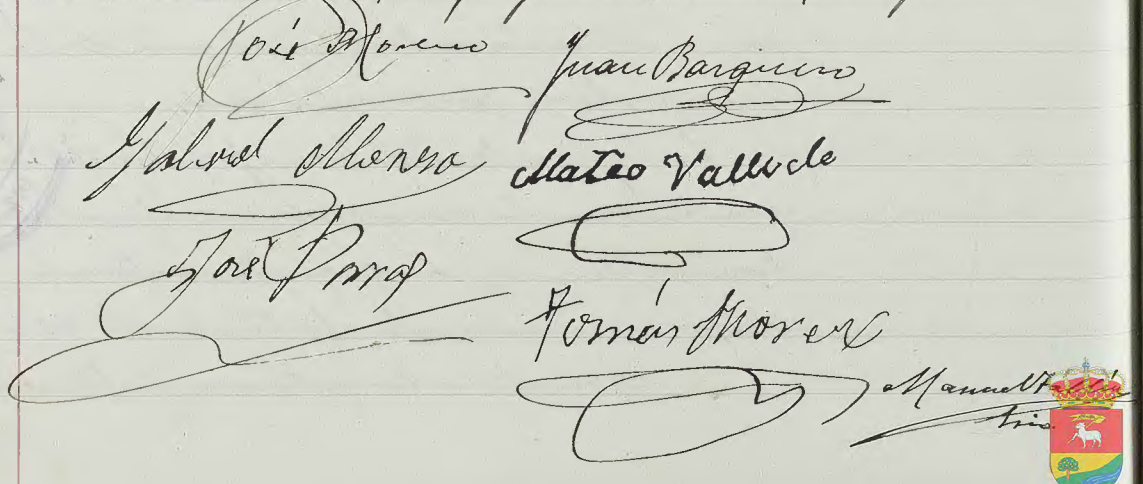 José Moreno
Juan Barquero
Gabriel Alonso
Mateo Valverde
José Porras
Tomás Moreno
Manuel